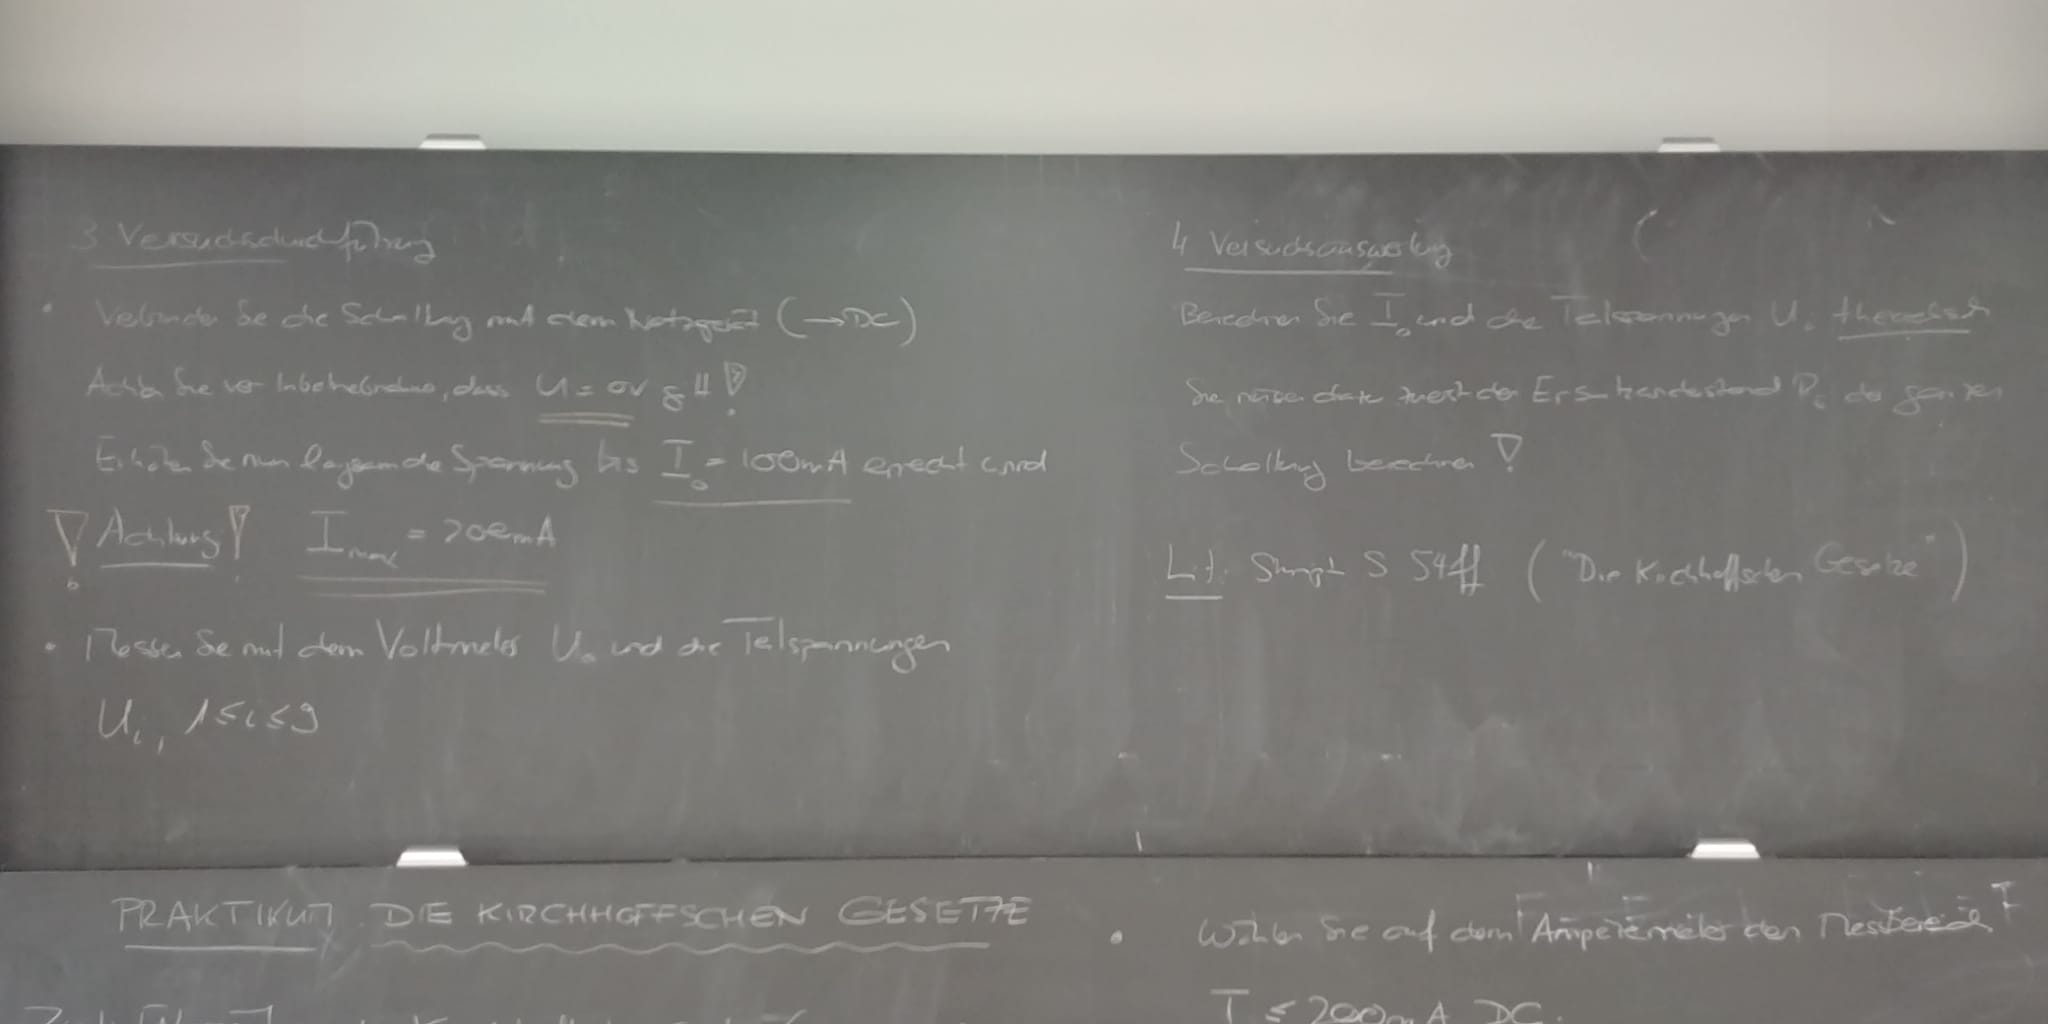 3 Versuchsdurchführung
• Verbinden Sie die Schaltung mit dem Netzgerät (→DC)
Achten Sie vor Inbetriebnahme, dass U = 0V gilt!
Erhöhen Sie nun langsam die Spannung bis I₀ = 100mA erreicht wird
! Achtung! I_max = 200mA
• Messen Sie mit dem Voltmeter U₀ und die Teilspannungen
Uᵢ, 1≤i≤9
4 Versuchsauswertung
Berechnen Sie I₀ und die Teilspannungen Uᵢ theoretisch
Sie müssen dazu zuerst den Ersatzwiderstand der ganzen
Schaltung berechnen!
Lit. Skript S 54ff ("Die Kirchhoffschen Gesetze")
PRAKTIKUM DIE KIRCHHOFFSCHEN GESETZE
• Wählen Sie auf dem Amperemeter den Messbereich
I ≤ 200mA DC.